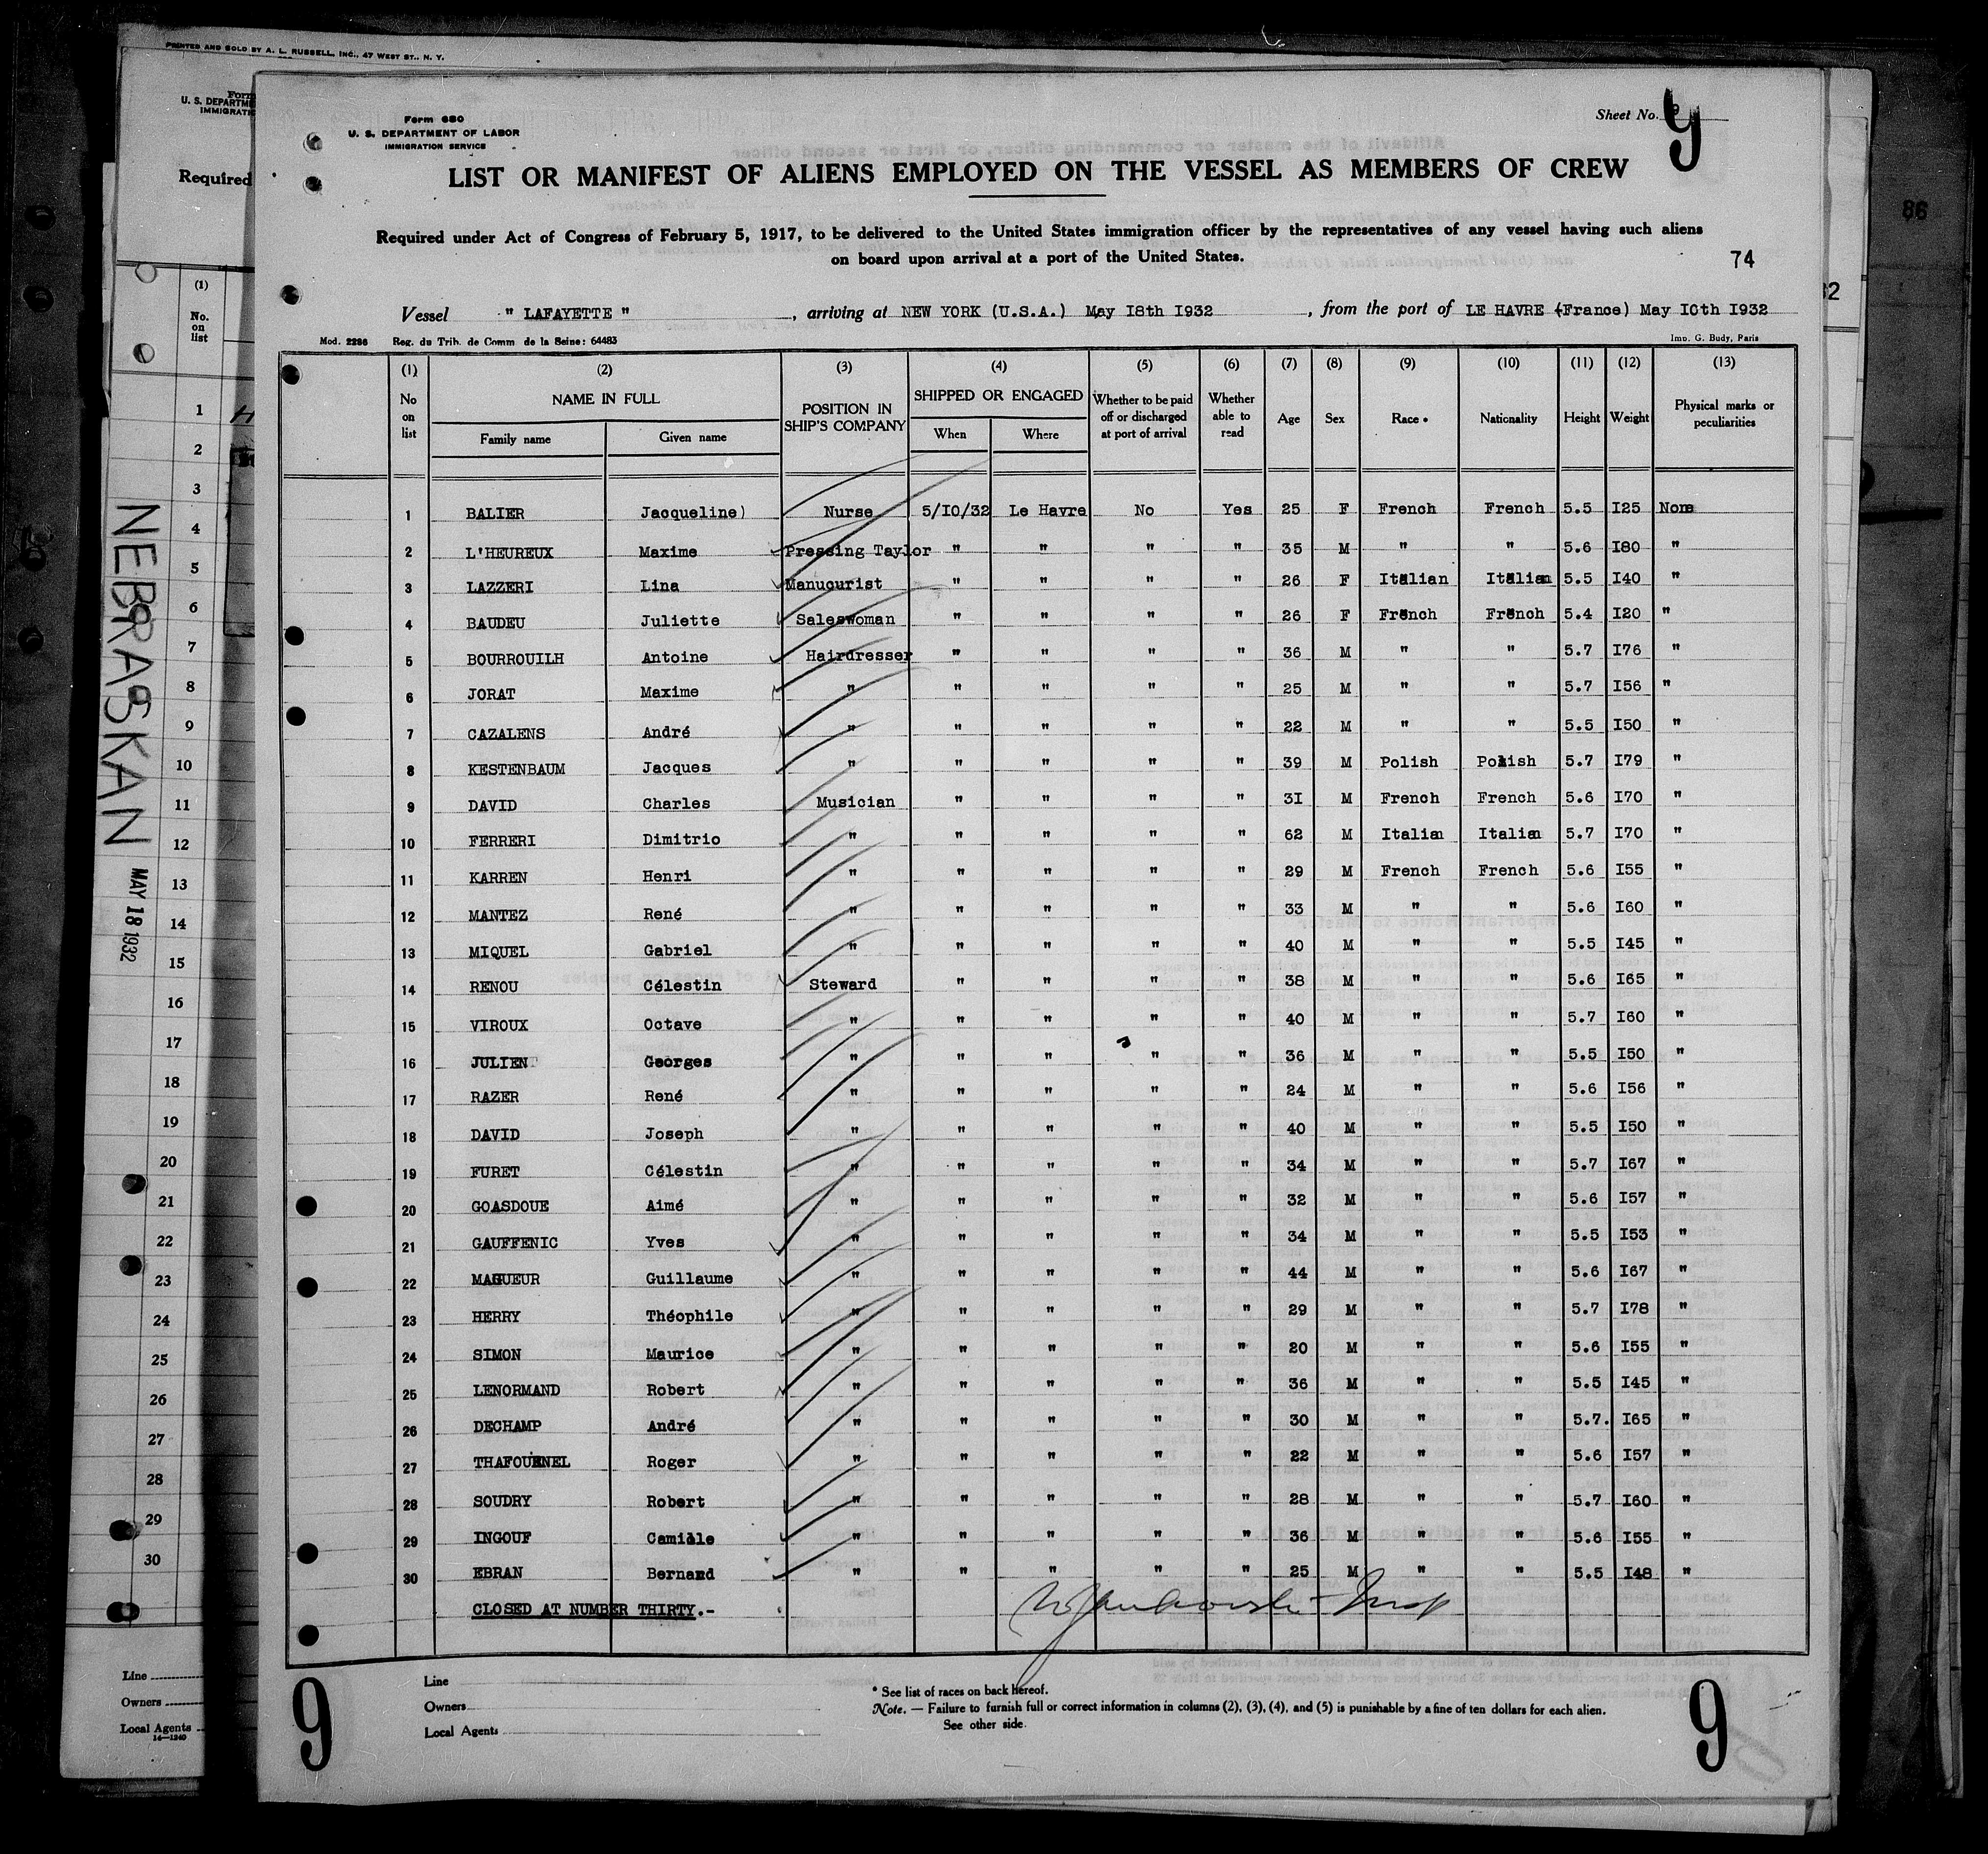 PRINTED AND SOLD BY A. L. RUSSELL, INC., 47 WEST ST., N. Y.
Form
U. S. DEPARTME
IMMIGRATIO
Required
(1)
No.
on
list
1
2
3
4
5
6
7
8
9
10
11
12
13
14
15
16
17
18
19
20
21
22
23
24
25
26
27
28
29
30
NEBRASKAN
MAY 18 1932
Line
Owners
Local Agents
14—1240
86
32
Form 680
U. S. DEPARTMENT OF LABOR
IMMIGRATION SERVICE
Sheet No. 9
LIST OR MANIFEST OF ALIENS EMPLOYED ON THE VESSEL AS MEMBERS OF CREW
Required under Act of Congress of February 5, 1917, to be delivered to the United States immigration officer by the representatives of any vessel having such aliens
on board upon arrival at a port of the United States.
74
Vessel " LAFAYETTE " , arriving at NEW YORK (U.S.A.) May I8th I932 , from the port of LE HAVRE (France) May I0th I932
Mod. 2286 Reg. du Trib. de Comm de la Seine: 64483 Imp. G. Budy, Paris
(1) (2) (3) (4) (5) (6) (7) (8) (9) (10) (11) (12) (13)
No on list NAME IN FULL Family name Given name POSITION IN SHIP'S COMPANY SHIPPED OR ENGAGED When Where Whether to be paid off or discharged at port of arrival Whether able to read Age Sex Race * Nationality Height Weight Physical marks or peculiarities
1 BALIER Jacqueline) Nurse 5/I0/32 Le Havre No Yes 25 F French French 5.5 I25 None
2 L'HEUREUX Maxime Pressing Taylor " " " " 35 M " " 5.6 I80 "
3 LAZZERI Lina Manucurist " " " " 26 F Italian Italian 5.5 I40 "
4 BAUDEU Juliette Saleswoman " " " " 26 F French French 5.4 I20 "
5 BOURROUILH Antoine Hairdresser " " " " 36 M " " 5.7 I76 "
6 JORAT Maxime " " " " " 25 M " " 5.7 I56 "
7 CAZALENS André " " " " " 22 M " " 5.5 I50 "
8 KESTENBAUM Jacques " " " " " 39 M Polish Polish 5.7 I79 "
9 DAVID Charles Musician " " " " 3I M French French 5.6 I70 "
10 FERRERI Dimitrio " " " " " 62 M Italian Italian 5.7 I70 "
11 KARREN Henri " " " " " 29 M French French 5.6 I55 "
12 MANTEZ René " " " " " 33 M " " 5.6 I60 "
13 MIQUEL Gabriel " " " " " 40 M " " 5.5 I45 "
14 RENOU Célestin Steward " " " " 38 M " " 5.6 I65 "
15 VIROUX Octave " " " " " 40 M " " 5.7 I60 "
16 JULIEN Georges " " " " " 36 M " " 5.5 I50 "
17 RAZER René " " " " " 24 M " " 5.6 I56 "
18 DAVID Joseph " " " " " 40 M " " 5.5 I50 "
19 FURET Célestin " " " " " 34 M " " 5.7 I67 "
20 GOASDOUE Aimé " " " " " 32 M " " 5.6 I57 "
21 GAUFFENIC Yves " " " " " 34 M " " 5.5 I53 "
22 MAGUEUR Guillaume " " " " " 44 M " " 5.6 I67 "
23 HERRY Théophile " " " " " 29 M " " 5.7 I78 "
24 SIMON Maurice " " " " " 20 M " " 5.6 I55 "
25 LENORMAND Robert " " " " " 36 M " " 5.5 I45 "
26 DECHAMP André " " " " " 30 M " " 5.7. I65 "
27 THAFOURNEL Roger " " " " " 22 M " " 5.6 I57 "
28 SOUDRY Robert " " " " " 28 M " " 5.7 I60 "
29 INGOUF Camille " " " " " 36 M " " 5.6 I55 "
30 EBRAN Bernard " " " " " 25 M " " 5.5 I48 "
CLOSED AT NUMBER THIRTY.-
Line
Owners
Local Agents
* See list of races on back hereof.
Note. — Failure to furnish full or correct information in columns (2), (3), (4), and (5) is punishable by a fine of ten dollars for each alien.
See other side.
9
9